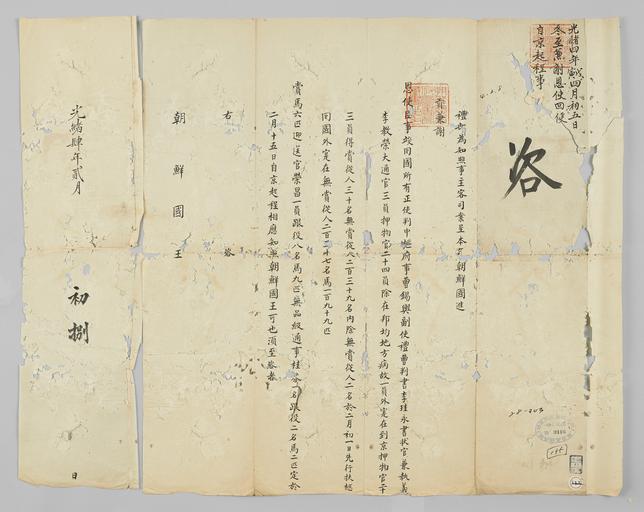 光緒四年戊寅四月初五日
冬至兼謝恩使回便
自京起程事
咨
禮部為知照事主客司案呈本部朝鮮國進
賫兼謝
恩使臣事竣回國所有正使判中樞府事曹錫輿副使禮曹判書李 永書狀官兼執義
李教榮大通官三員押物官二十四員除在邦均地方病故一員外寔在到京押物官二十
三員得賞從人三十名無賞從人二百三十九名內除無賞從人二名於二月初一日先行扶柩
回國外寔在無賞從人二百三十七名馬一百九十九匹
賞馬六匹迎送官榮昌一員跟役八名馬九匹無品級通事 一名跟役二名馬二匹定於
二月十五日自京起程相應知照朝鮮國王可也須至咨者
右 咨
朝鮮國王
光緒肆年貳月 初捌 日